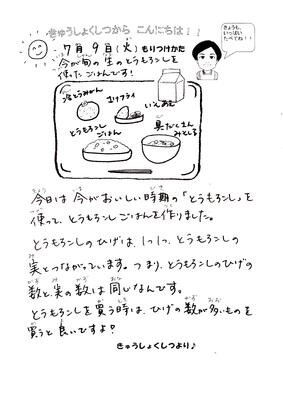 きゅうしょくしつから こんにちは！！
きょうも、
いっぱい
たべてね！！
7月 9日(火) もりつけかた
今が旬の 生の とうもろこしを
使った ごはんです！
冷とうみかん
とうもろこし
ごはん
具だくさん
みそしる
今日は 今がおいしい時期の「とうもろこし」を
使って、とうもろこしごはんを作りました。
とうもろこしのひげは、1つ1つ、とうもろこしの
実とつながっています。つまり、とうもろこしのひげの
数と、実の数は同じなんです。
とうもろこしを買う時は、ひげの数が多いものを
買うと良いですよ♪
きゅうしょくしつより♪